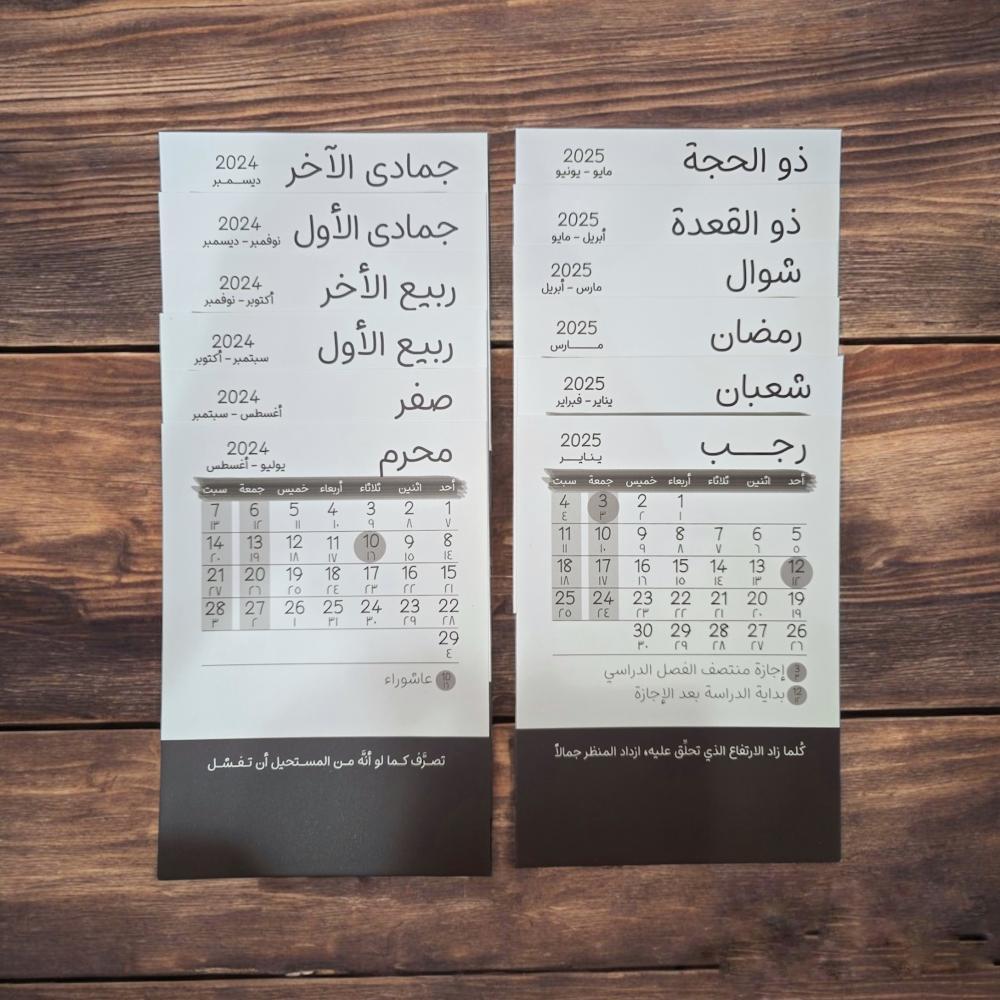 ذو الحجة
2025
مايو - يونيو
ذو القعدة
2025
أبريل - مايو
شوال
2025
مارس - أبريل
رمضان
2025
مـــارس
شعبان
2025
يناير - فبراير
رجـــب
2025
ينايـــر
أحد اثنين ثلاثاء أربعاء خميس جمعة سبت
1 2 3 4
١ ٢ ٣ ٤
5 6 7 8 9 10 11
٥ ٦ ٧ ٨ ٩ ١٠ ١١
12 13 14 15 16 17 18
١٢ ١٣ ١٤ ١٥ ١٦ ١٧ ١٨
19 20 21 22 23 24 25
١٩ ٢٠ ٢١ ٢٢ ٢٣ ٢٤ ٢٥
26 27 28 29 30
٢٦ ٢٧ ٢٨ ٢٩ ٣٠
3 ٣ إجازة منتصف الفصل الدراسي
12 ١٢ بداية الدراسة بعد الإجازة
كُلما زاد الارتفاع الذي تحلِّق عليه، ازداد المنظر جمالاً
جمادى الآخر
2024
ديســمـبر
جمادى الأول
2024
نوفمبر - ديسمبر
ربيع الأخر
2024
أكتوبر - نوفمبر
ربيع الأول
2024
سبتمبر - أكتوبر
صفر
2024
أغسطس - سبتمبر
محرم
2024
يوليو - أغسطس
أحد اثنين ثلاثاء أربعاء خميس جمعة سبت
1 2 3 4 5 6 7
٧ ٨ ٩ ١٠ ١١ ١٢ ١٣
8 9 10 11 12 13 14
١٤ ١٥ ١٦ ١٧ ١٨ ١٩ ٢٠
15 16 17 18 19 20 21
٢١ ٢٢ ٢٣ ٢٤ ٢٥ ٢٦ ٢٧
22 23 24 25 26 27 28
٢٨ ٢٩ ٣٠ ٣١ ١ ٢ ٣
29
٤
10 ١٦ عاشوراء
تصرَّف كـما لو أنَّه مـن المسـتحيل أن تـفـشـل